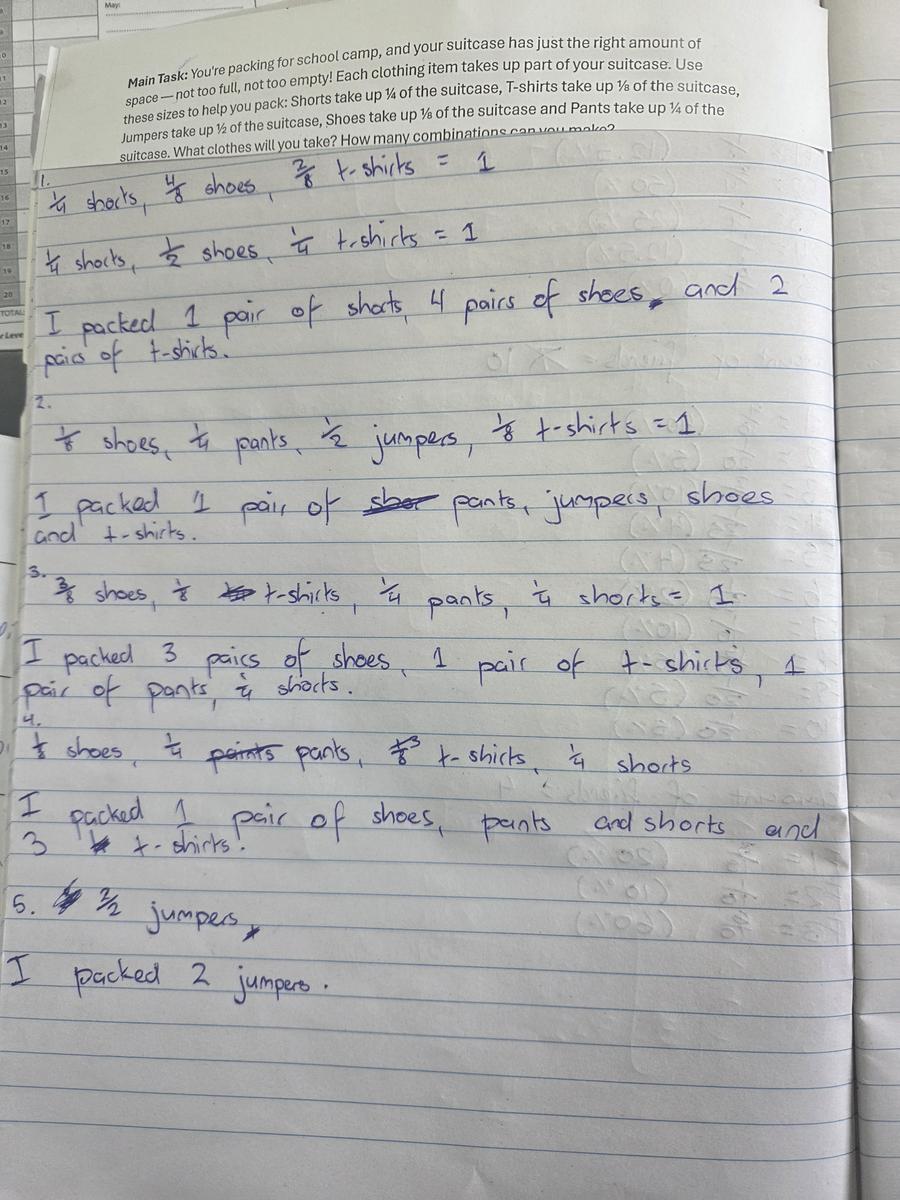 May:
Main Task: You're packing for school camp, and your suitcase has just the right amount of
space — not too full, not too empty! Each clothing item takes up part of your suitcase. Use
these sizes to help you pack: Shorts take up ¼ of the suitcase, T-shirts take up ⅛ of the suitcase,
Jumpers take up ½ of the suitcase, Shoes take up ⅛ of the suitcase and Pants take up ¼ of the
suitcase. What clothes will you take? How many combinations can you make?
1.
1/4 shorts, 4/8 shoes, 2/8 t-shirts = 1
1/4 shorts, 1/2 shoes, 1/4 t-shirts = 1
I packed 1 pair of shorts, 4 pairs of shoes, and 2
pairs of t-shirts.
2.
1/8 shoes, 1/4 pants, 1/2 jumpers, 1/8 t-shirts = 1
I packed 1 pair of pants, jumpers, shoes
and t-shirts.
3.
3/8 shoes, 1/8 t-shirts, 1/4 pants, 1/4 shorts = 1
I packed 3 pairs of shoes, 1 pair of t-shirts, 1
pair of pants, 1/4 shorts.
4.
1/8 shoes, 1/4 paints pants, 3/8 t-shirts, 1/4 shorts
I packed 1 pair of shoes, pants and shorts and
3 t-shirts.
5. 2/2 jumpers
I packed 2 jumpers.
12
13
14
15
16
17
18
19
20
TOTAL:
r Leve